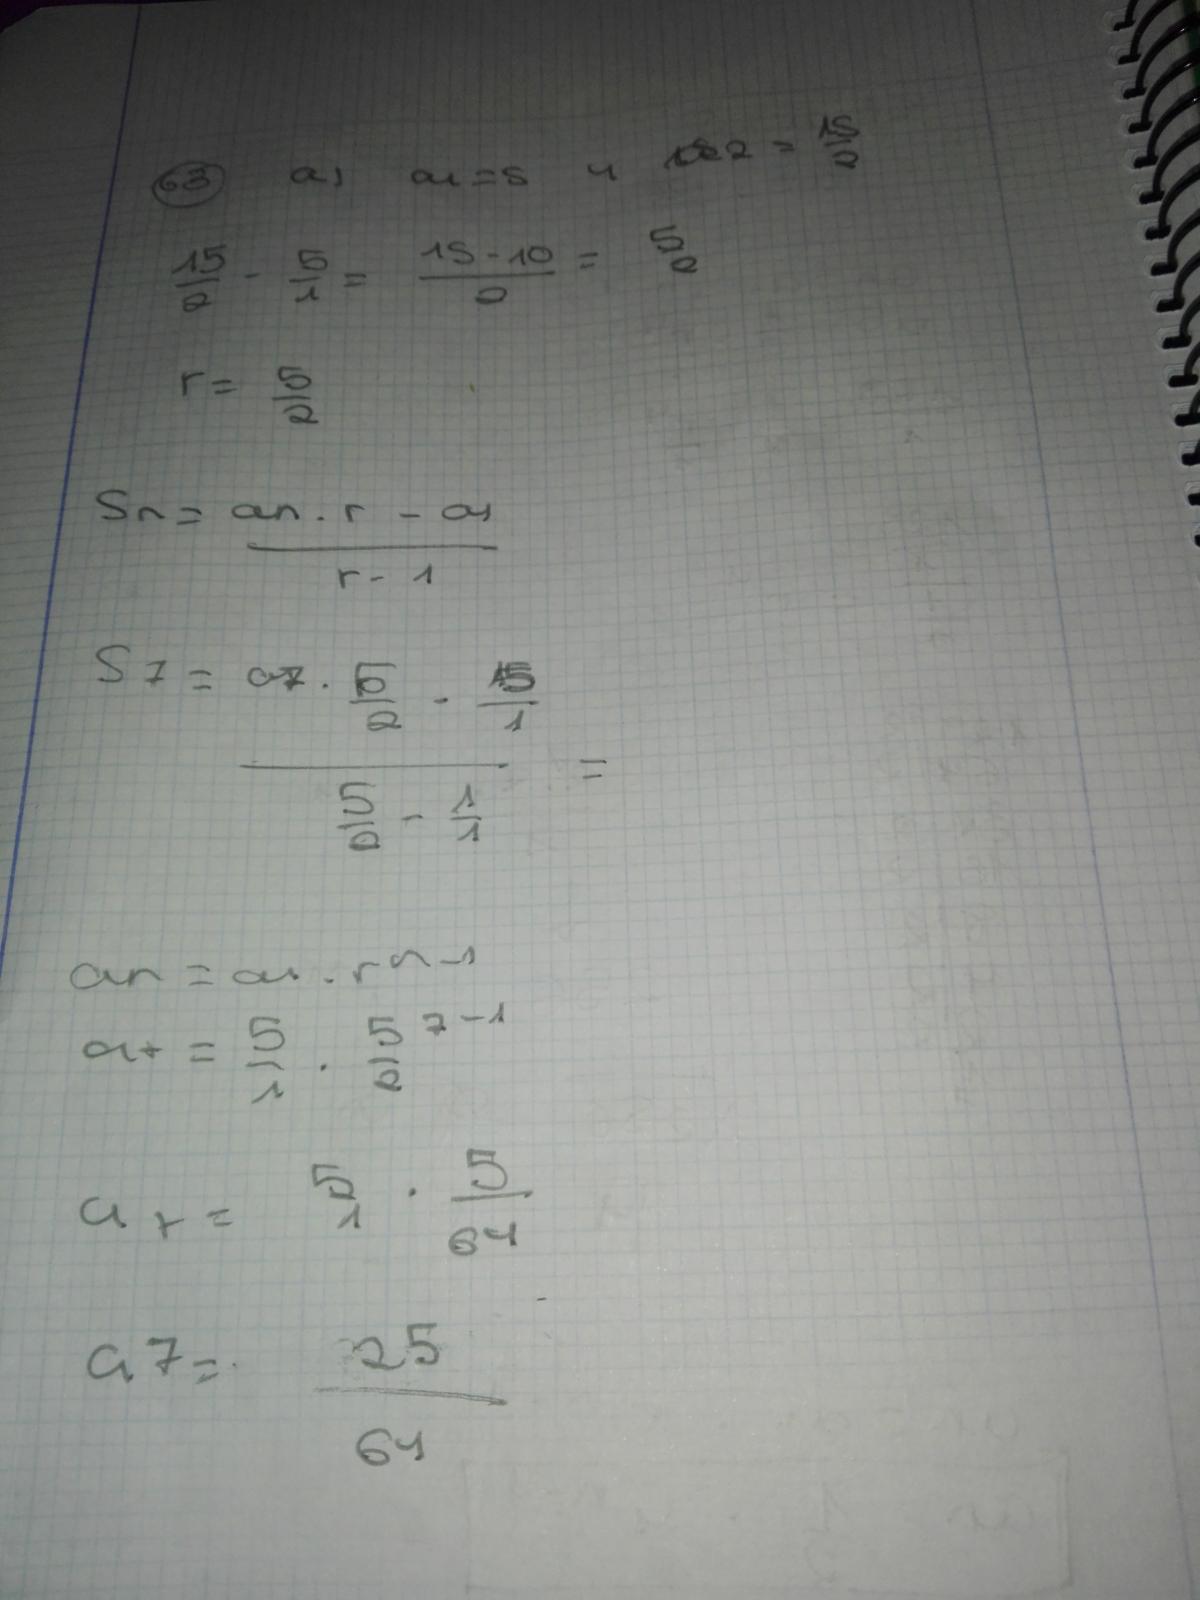 63 a) a1 = 5 y a2 = 15/2
15/2 - 5/1 = 15 - 10/2 = 5/2
r = 5/2
Sn = an · r - a1 / r - 1
S7 = a7 · 5/2 - 5/1 / 5/2 - 1/1 =
an = a1 · r n-1
a7 = 5/1 · 5/2 7-1
a7 = 5/1 · 5/64
a7 = 25/64